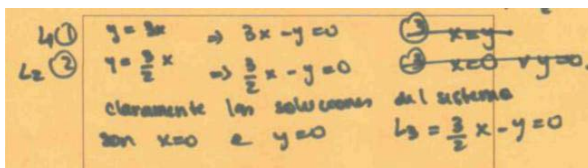 L1 ① y = 3x ⇒ 3x - y = 0 ③ x = y
L2 ② y = 3/2 x ⇒ 3/2 x - y = 0 ③ x = 0 ∨ y = 0.
claramente las soluciones del sistema
son x=0 e y=0 L3 = 3/2 x - y = 0